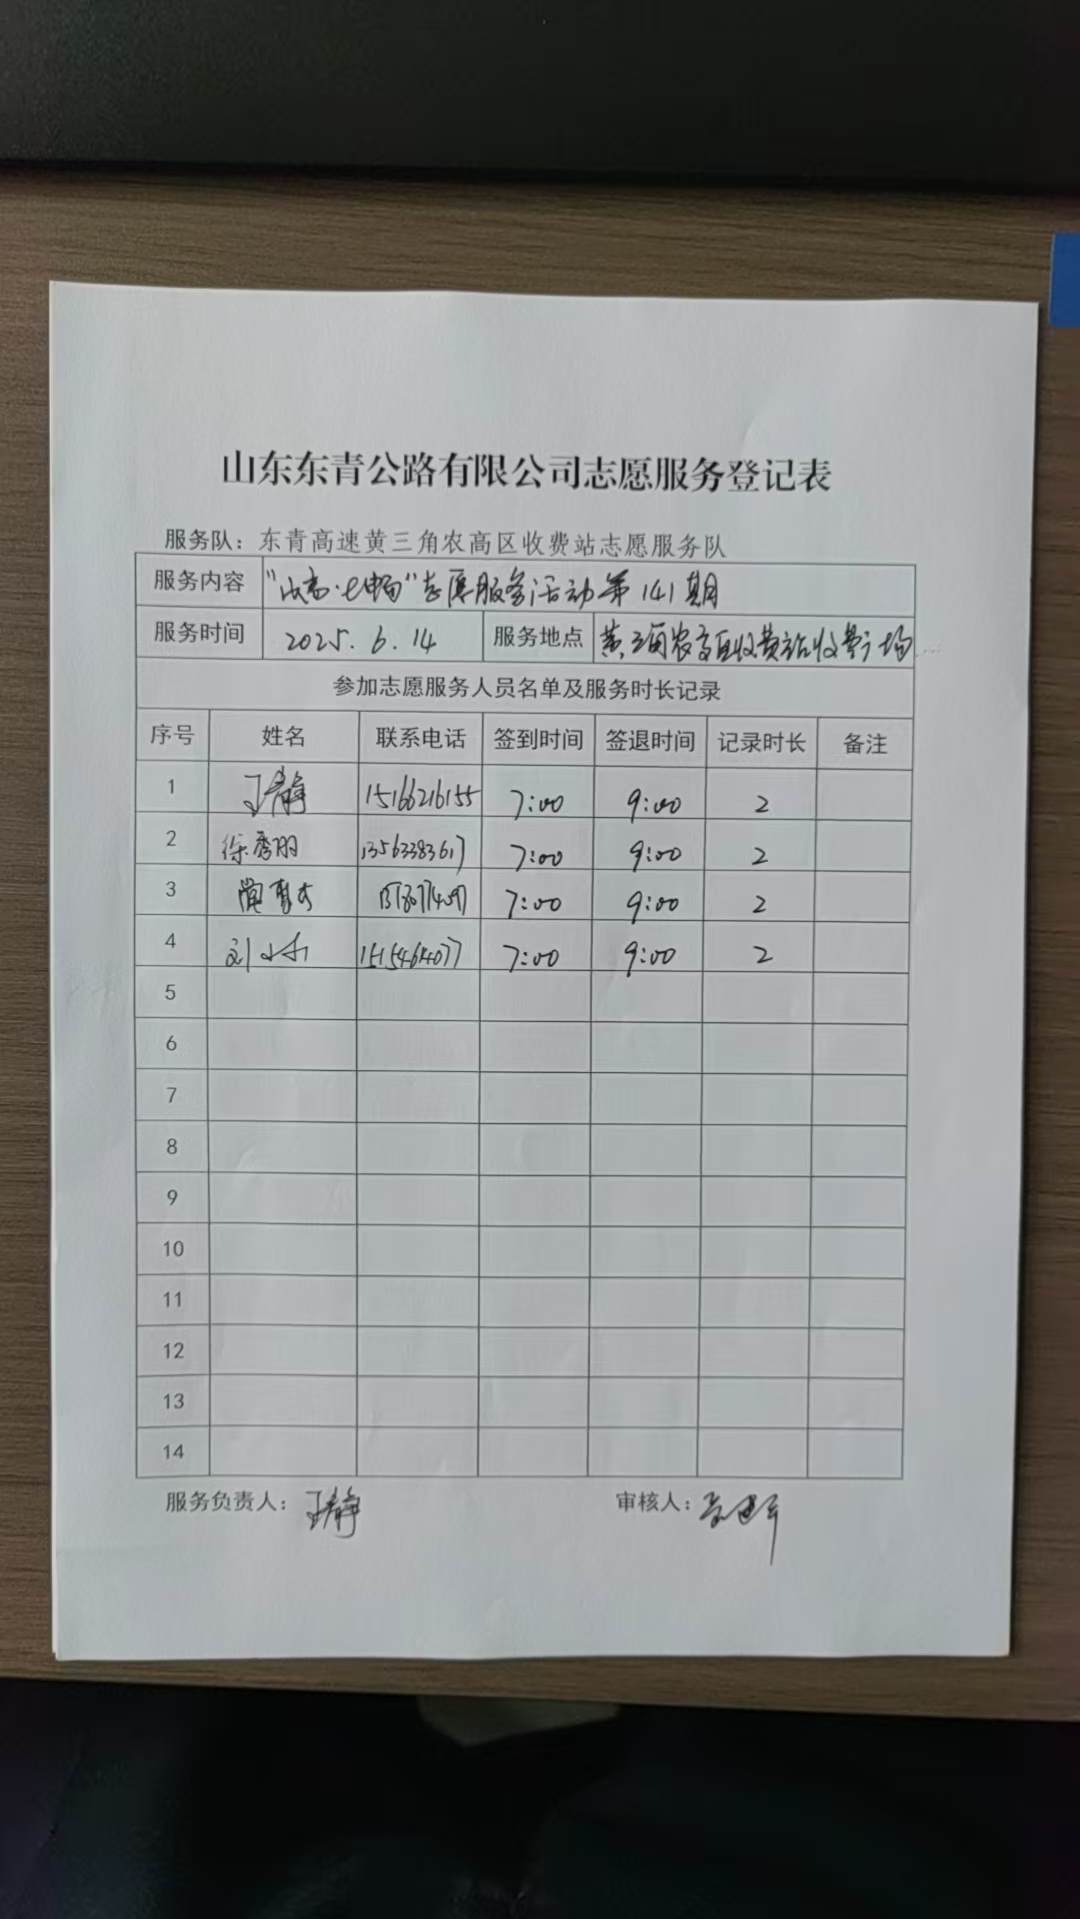 山东东青公路有限公司志愿服务登记表
服务队：东青高速黄三角农高区收费站志愿服务队
服务内容 "山高·e畅"志愿服务活动第141期
服务时间 2025.6.14 服务地点 黄三角农高区收费站收费广场
参加志愿服务人员名单及服务时长记录
序号 姓名 联系电话 签到时间 签退时间 记录时长 备注
1 王静 15166216155 7:00 9:00 2
2 徐秀丽 13563383617 7:00 9:00 2
3 7:00 9:00 2
4 刘 7:00 9:00 2
5
6
7
8
9
10
11
12
13
14
服务负责人：王静 审核人：